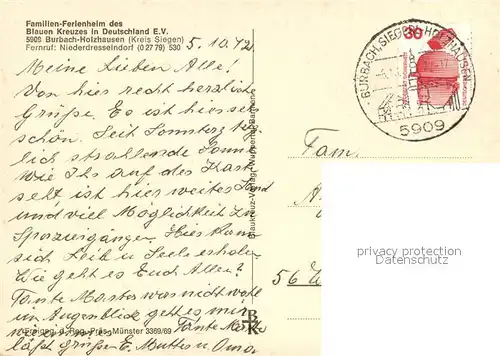 Familien-Ferienheim des
Blauen Kreuzes in Deutschland E.V.
5909 Burbach-Holzhausen (Kreis Siegen)
Fernruf: Niederdresselndorf (0 27 79) 530
5.10.72
Meine Lieben Alle!
Von hier recht herzlich
Grüße. Es ist hier sehr
schön. Seit Sonntag täg
lich strahlende Sonne
Wie Ihr auf der Karte
seht ist hier weites Land
und viel Möglichkeit zu
Spaziergänge. Hier kann
sich Leib u Seele erholen
Wie geht es Euch Allen?
Tante Martha war nicht wohl
im Augenblick geht es mir
Freigeg. d. Reg.-Präs. Münster 3369/69
Tante
läßt grüßen E. Mutter u Oma
Blaukreuz-Verlag Wuppertal-Barmen
BURBACH, SIEGERL-HOLZHAUSEN
5909
30
Fam.
56 W
privacy protection
watermark